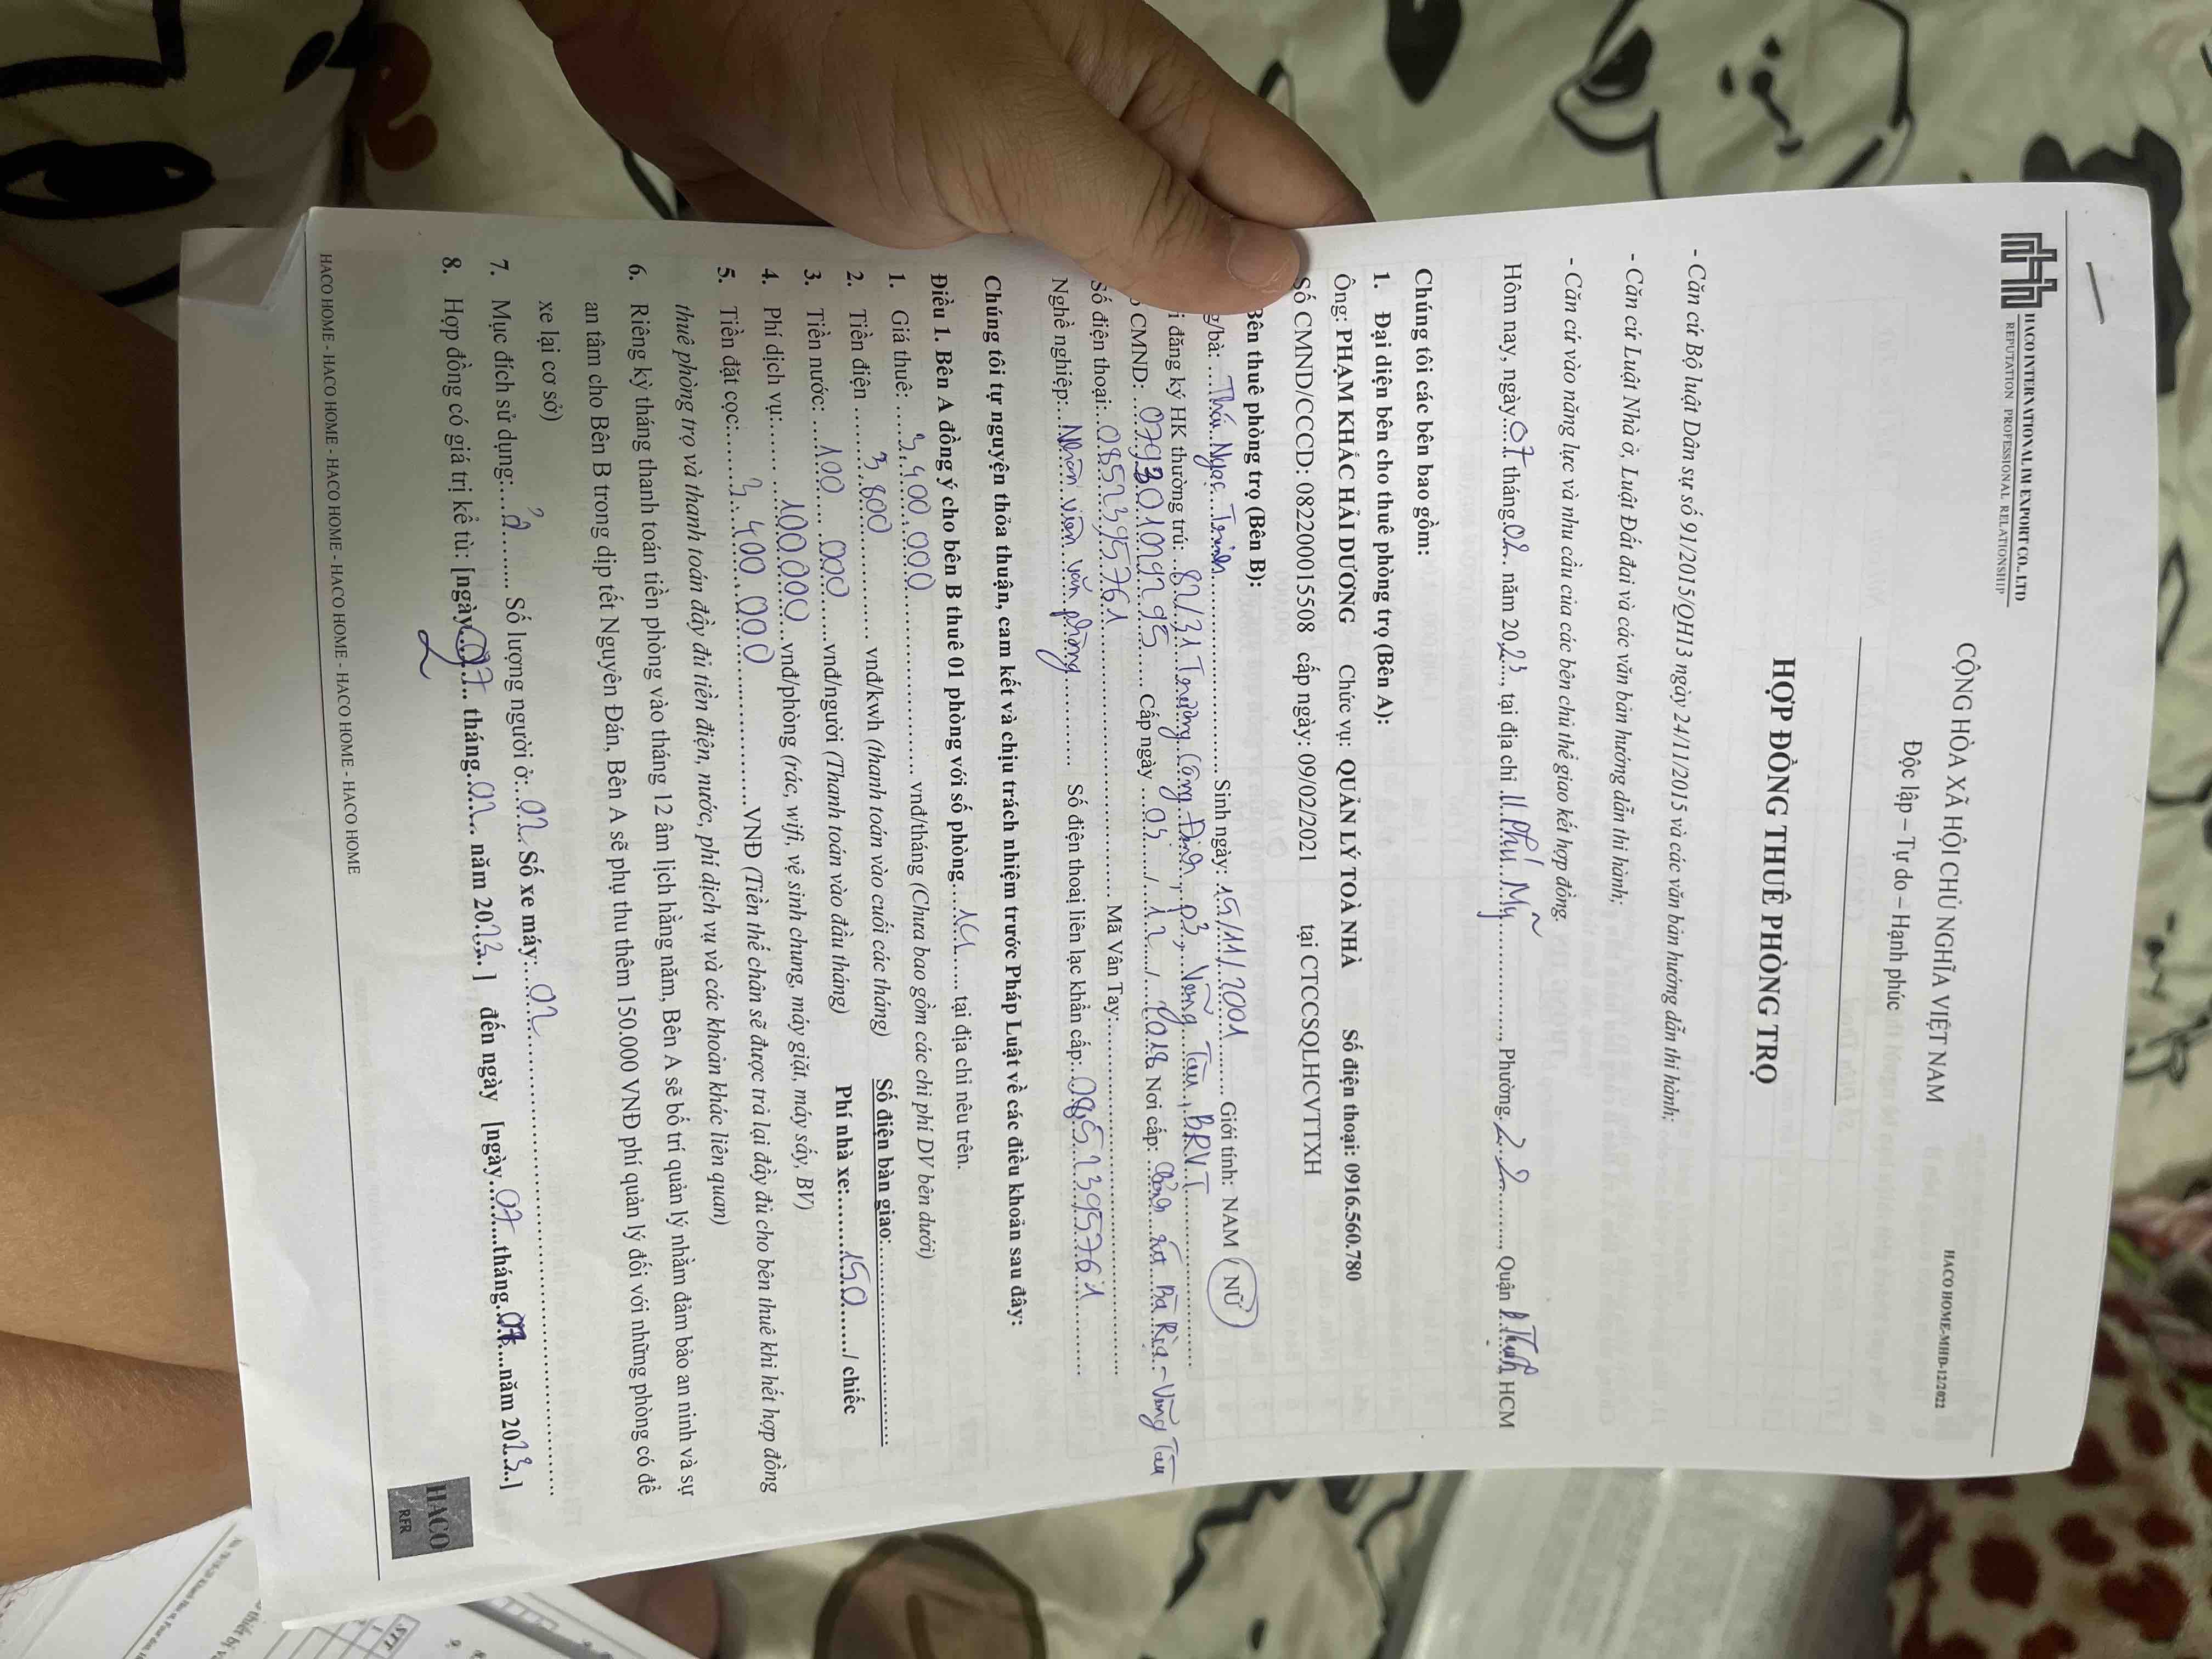 HACO INTERNATIONAL IM-EXPORT CO., LTD
REPUTATION PROFESSIONAL RELATIONSHIP
HACO HOME-MHD-12/2022
CỘNG HÒA XÃ HỘI CHỦ NGHĨA VIỆT NAM
Độc lập – Tự do – Hạnh phúc
HỢP ĐỒNG THUÊ PHÒNG TRỌ
- Căn cứ Bộ luật Dân sự số 91/2015/QH13 ngày 24/11/2015 và các văn bản hướng dẫn thi hành;
- Căn cứ Luật Nhà ở, Luật Đất đai và các văn bản hướng dẫn thi hành;
- Căn cứ vào năng lực và nhu cầu của các bên chủ thể giao kết hợp đồng.
Hôm nay, ngày 07 tháng 02 năm 2023, tại địa chỉ 11 Phú Mỹ, Phường 22, Quận B.Thạnh HCM
Chúng tôi các bên bao gồm:
1. Đại diện bên cho thuê phòng trọ (Bên A):
Ông: PHẠM KHẮC HẢI DƯƠNG Chức vụ: QUẢN LÝ TOÀ NHÀ Số điện thoại: 0916.560.780
Số CMND/CCCD: 082200015508 cấp ngày: 09/02/2021 tại CTCCSQLHCVTTXH
Bên thuê phòng trọ (Bên B):
g/bà: Thái Ngọc Trinh Sinh ngày: 15/11/2001 Giới tính: NAM NỮ
i đăng ký HK thường trú: 82/31 Trương Công Định, P3, Vũng Tàu, BRVT
CMND: Cấp ngày 03/12/2018 Nơi cấp: Bà Rịa - Vũng Tàu
Số điện thoại: 0852395761 Mã Vân Tay:
Nghề nghiệp: Nhân viên văn phòng Số điện thoại liên lạc khẩn cấp: 0852395761
Chúng tôi tự nguyện thỏa thuận, cam kết và chịu trách nhiệm trước Pháp Luật về các điều khoản sau đây:
Điều 1. Bên A đồng ý cho bên B thuê 01 phòng với số phòng tại địa chỉ nêu trên.
1. Giá thuê: 3.400.000 vnđ/tháng (Chưa bao gồm các chi phí DV bên dưới)
2. Tiền điện 3.800 vnđ/kwh (thanh toán vào cuối các tháng) Số điện bàn giao:
3. Tiền nước: 100.000 vnđ/người (Thanh toán vào đầu tháng) Phí nhà xe: 150 / chiếc
4. Phí dịch vụ: 100.000 vnđ/phòng (rác, wifi, vệ sinh chung, máy giặt, máy sấy, BV)
5. Tiền đặt cọc: 3.400.000 VNĐ (Tiền thế chân sẽ được trả lại đầy đủ cho bên thuê khi hết hợp đồng
thuê phòng trọ và thanh toán đầy đủ tiền điện, nước, phí dịch vụ và các khoản khác liên quan)
6. Riêng kỳ tháng thanh toán tiền phòng vào tháng 12 âm lịch hằng năm, Bên A sẽ bố trí quản lý nhằm đảm bảo an ninh và sự
an tâm cho Bên B trong dịp tết Nguyên Đán, Bên A sẽ phụ thu thêm 150.000 VNĐ phí quản lý đối với những phòng có để
xe lại cơ sở)
7. Mục đích sử dụng: ở Số lượng người ở: 02 Số xe máy: 02
8. Hợp đồng có giá trị kể từ: [ngày 07 tháng 02 năm 2023] đến ngày [ngày 07 tháng năm 2023]
HACO HOME - HACO HOME - HACO HOME - HACO HOME - HACO HOME - HACO HOME - HACO HOME
HACO
RFR
STT